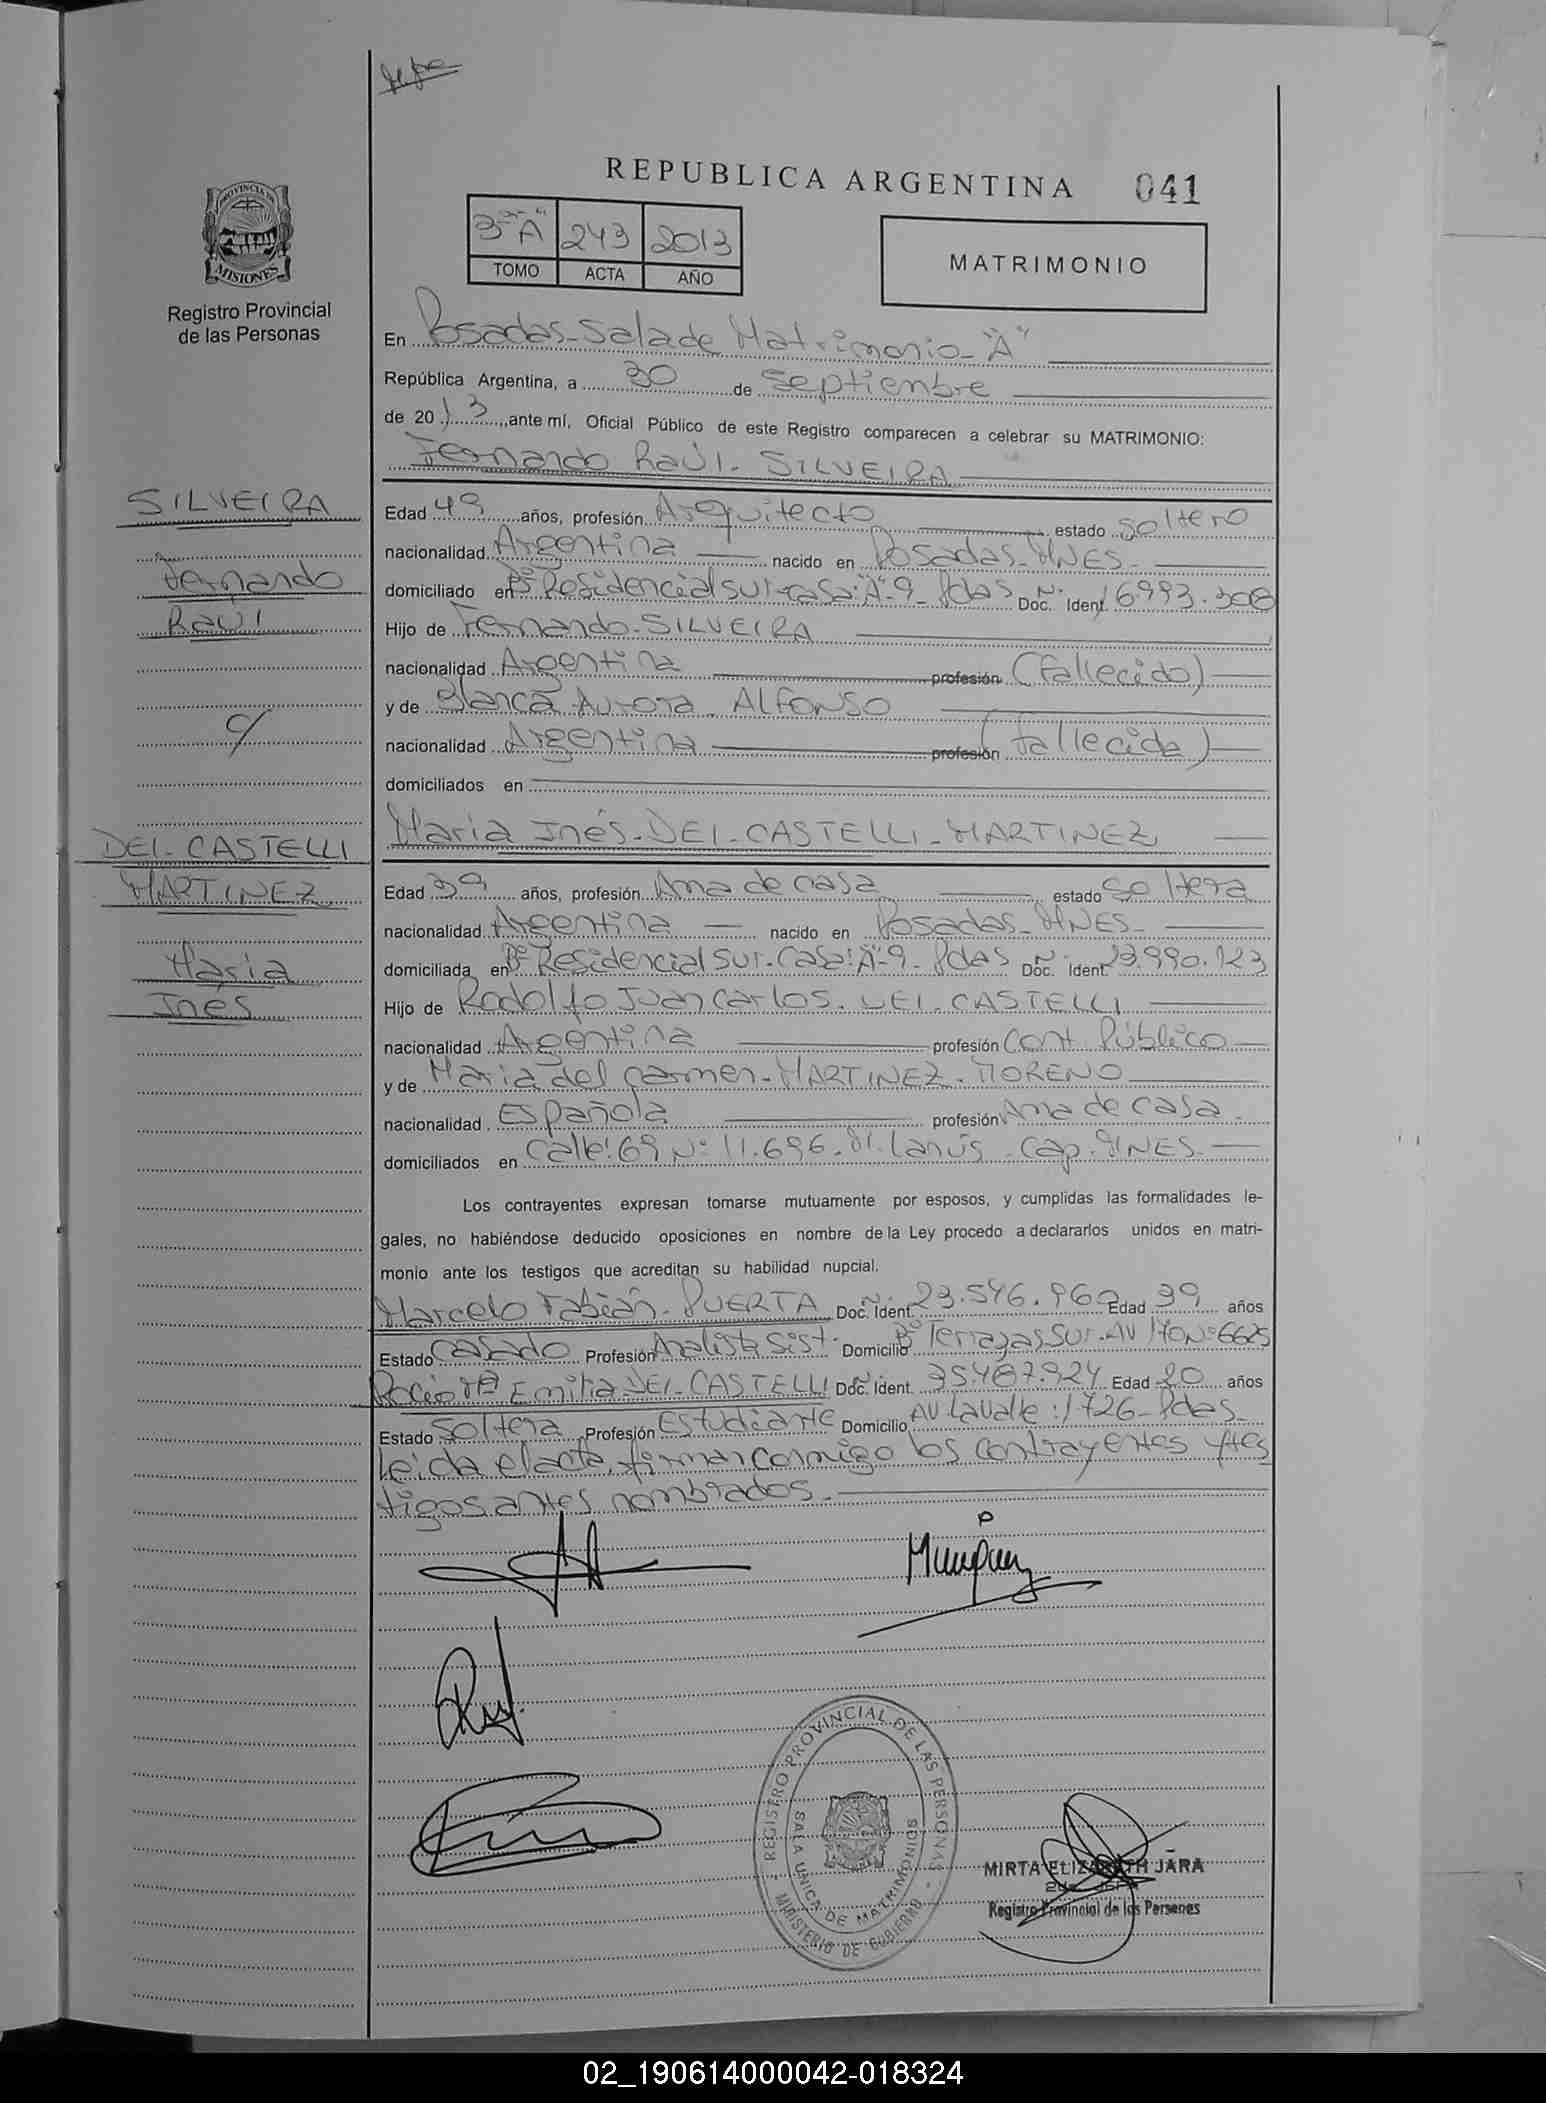 REPUBLICA ARGENTINA 041
PROVINCIA DE
MISIONES
Registro Provincial
de las Personas
3º "A" 243 2013
TOMO ACTA AÑO
MATRIMONIO
En Posadas-Sala de Matrimonio-"A"
República Argentina, a 30 de Septiembre
de 2013, ante mí, Oficial Público de este Registro comparecen a celebrar su MATRIMONIO:
Fernando Raúl. SILVEIRA
SILVEIRA
Fernando
Raúl
c/
DEI-CASTELLI
MARTINEZ
María
Inés
Edad 49 años, profesión Arquitecto estado soltero
nacionalidad Argentina nacido en Posadas-MNES-
domiciliado en Bº Residencial sur-casa:"A"-9-Pdas Doc. Ident. 16993.308
Hijo de Fernando-SILVEIRA
nacionalidad Argentina profesión (fallecido)
y de Blanca Aurora ALFONSO
nacionalidad Argentina profesión (fallecida)
domiciliados en
María Inés-DEI-CASTELLI-MARTINEZ
Edad 39 años, profesión Ama de casa estado soltera
nacionalidad Argentina nacido en Posadas-MNES-
domiciliada en Bº Residencial sur-Casa:"A"-9-Pdas Doc. Ident 23.990.123
Hijo de Rodolfo Juan Carlos-DEI-CASTELLI
nacionalidad Argentina profesión Cont. Público
y de María del Carmen-MARTINEZ-MORENO
nacionalidad Española profesión Ama de casa-
domiciliados en Calle:69 Nº 11.696-It. Lanús-Cap. MNES-
Los contrayentes expresan tomarse mutuamente por esposos, y cumplidas las formalidades le-
gales, no habiéndose deducido oposiciones en nombre de la Ley procedo a declararlos unidos en matri-
monio ante los testigos que acreditan su habilidad nupcial.
Marcelo Fabián-PUERTA Doc. Ident. 23.546.960 Edad 39 años
Estado Casado Profesión Analista Sist. Domicilio Bº Terrazas Sur-AV 170 Nº 6625
Rocío Mª Emilia DEI-CASTELLI Doc. Ident. 35.487.924 Edad 20 años
Estado soltera Profesión Estudiante Domicilio AV Lavalle:1726-Pdas-
Leída el acta, firman conmigo los contrayentes y tes
tigos antes nombrados.
REGISTRO PROVINCIAL DE LAS PERSONAS
SALA UNICA DE MATRIMONIOS
MINISTERIO DE GOBIERNO
MIRTA ELIZABETH JARA
Registro Provincial de las Personas
02_190614000042-018324